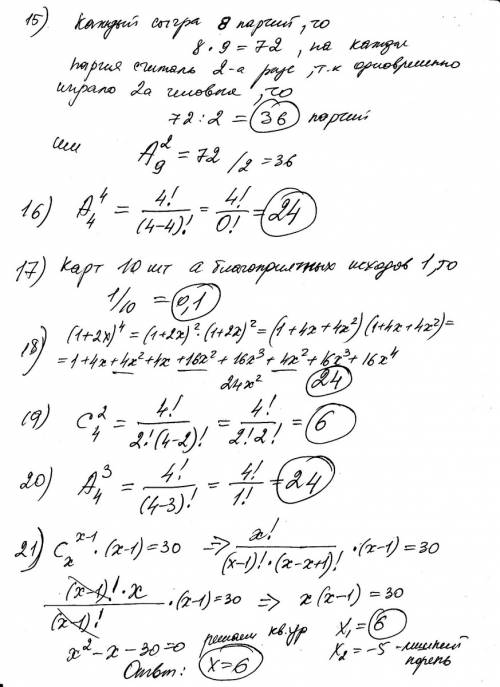 15) Каждый сыгра 8 партий, то
8 · 9 = 72, на кажды
партия считаль 2-а раза, т.к одновременно
играло 2а человека, то
72 : 2 = 36 партий
или A₉² = 72 /2 = 36
16) A₄⁴ = 4!/(4-4)! = 4!/0! = 24
17) Карт 10 шт а благоприятных исходов 1, то
1/10 = 0,1
18) (1+2x)⁴ = (1+2x)² · (1+2x)² = (1+4x+4x²)(1+4x+4x²) =
= 1+4x+4x²+4x+16x²+16x³+4x²+16x³+16x⁴
24x² 24
19) C₄² = 4!/2!(4-2)! = 4!/2!2! = 6
20) A₄³ = 4!/(4-3)! = 4!/1! = 24
21) Cₓˣ⁻¹ · (x-1) = 30 ⇒ x!/(x-1)! · (x-x+1)! · (x-1) = 30
(x-1)! · x/(x-1)! · (x-1) = 30 ⇒ x(x-1) = 30
x² - x - 30 = 0 решаем кв.ур X₁ = 6
X₂ = -5 - лишний корень
Ответ: X = 6